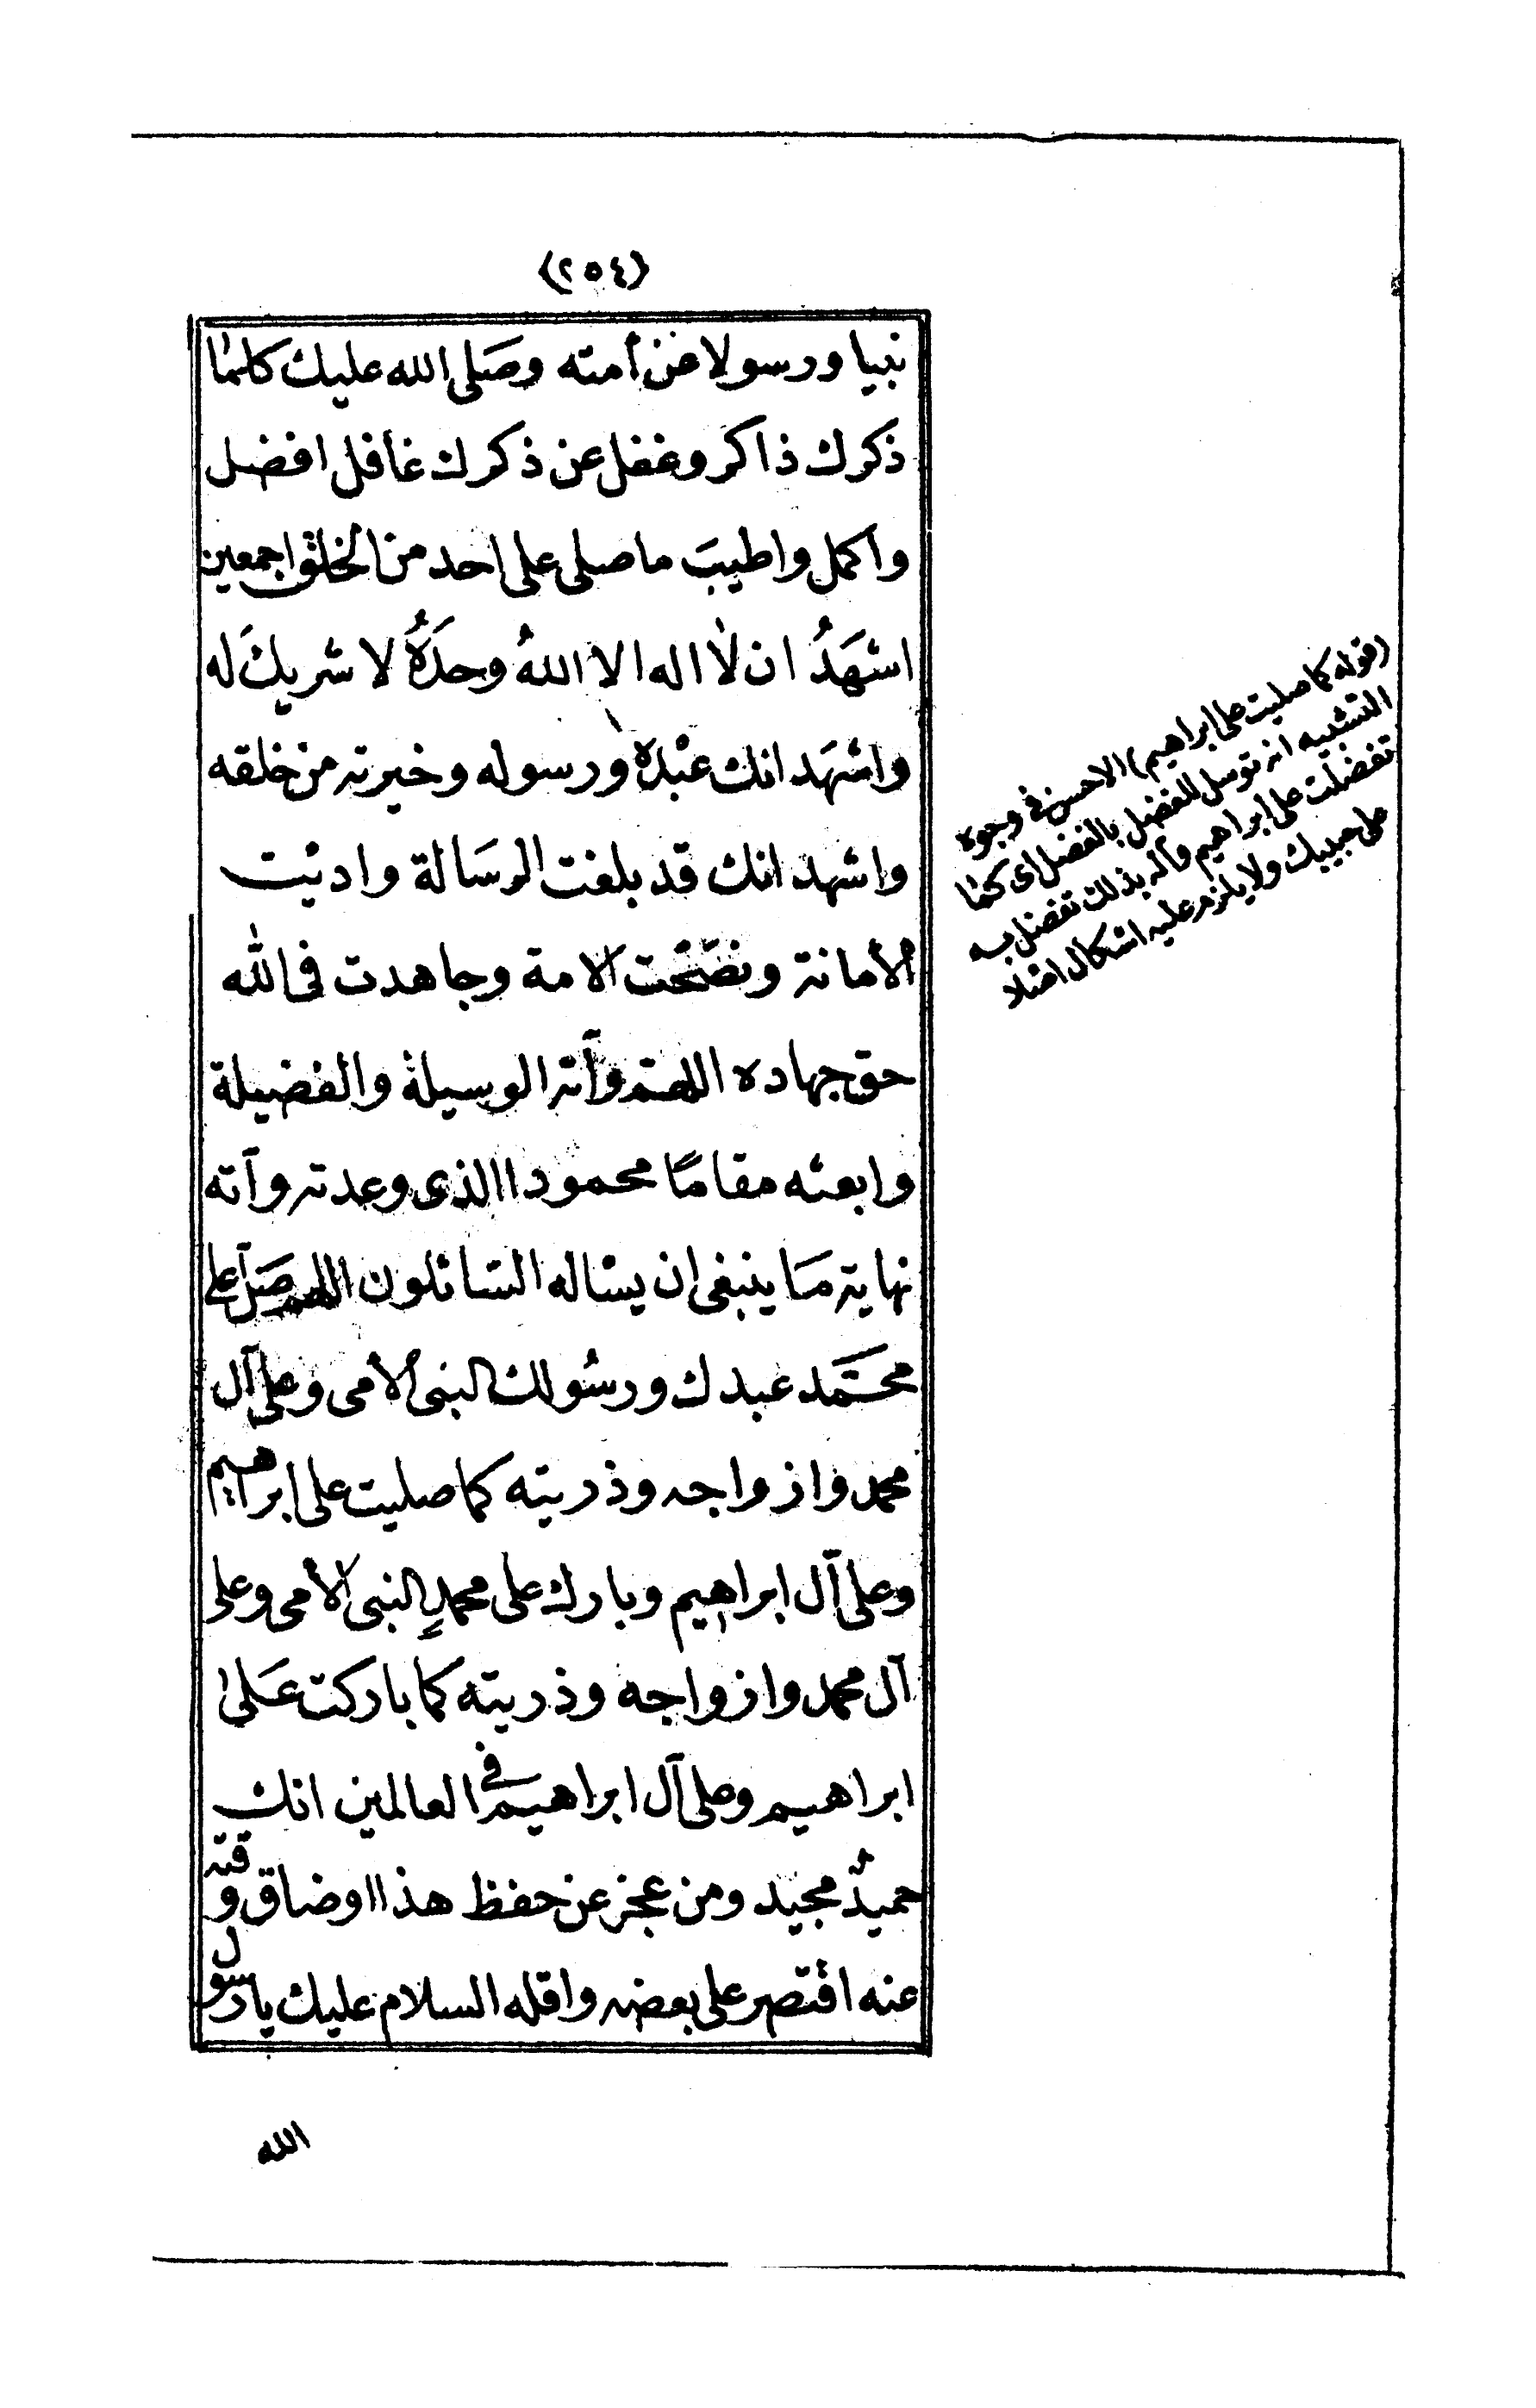 (٢٥٤)
نبيا ورسولا عن أمته وصَلى الله عليك كلما
ذكرك ذاكر وغفل عن ذكرك غافل افضل
واكمل واطيبَ ما صلى على احد من الخلق اجمعين
اشهَدُ ان لا اله الا اللهُ وحدَهُ لا شريكَ له
واشهَد انك عبْده ورسوله وخيرته من خلقه
واشهد انك قد بلغت الرسَالة واديت
الأمانة ونصَحْت الامة وجاهدت فى الله
حق جهاده اللهم وآته الوسيلة والفضيلة
وابعثه مقامًا محمودا الذى وعدته وآته
نهاية مَا ينبغى ان يساله السَائلون اللهم صَل على
محمَّد عبدك ورسُولك النبى الأمى وعلى آل
محمد وازواجه وذريته كما صليت على ابراهيم
وعلى آل ابراهيم وبارك على محمدٍ النبى الأمى وعلى
آل محمد وازواجه وذريته كما باركت عَلى
ابراهيم وعلى آل ابراهيم فى العالمين انك
حميدٌ مجيد ومن عجز عن حفظ هذا اوضاق وقته
عنه اقتصر على بعضه واقله السلام عليك يا رسول
الله
(قوله كما صليت على ابراهيم) الاحسن فى وجوه
التشبيه انه توسل للفضل بالفضل اى كما
تفضلت على ابراهيم وآله بذلك تفضل به
على حبيبك ولا يلزم عليه اشكال اصلا